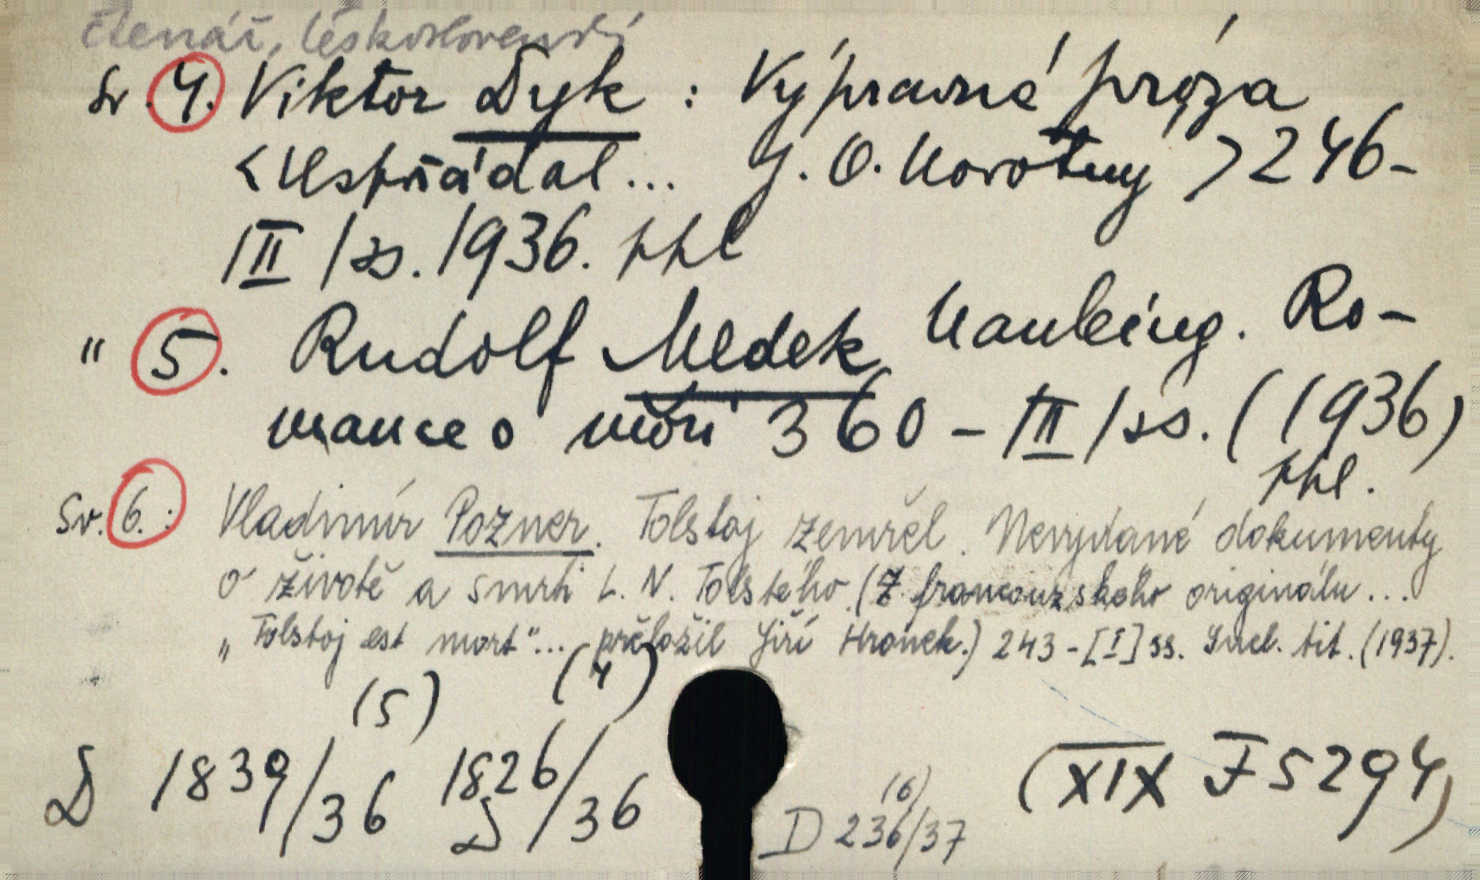 čtenář, československý
Sv. 4. Viktor Dyk : Výpravná próza
<Uspořádal... J. O. Novotný > 246-
III / ss. 1936. ppl
" 5. Rudolf Medek Nanking. Ro-
mance o moři 360 - III / ss. (1936)
ppl.
Sv. 6. : Vladimír Pozner. Tolstoj zemřel. Nevydané dokumenty
o životě a smrti L. N. Tolstého. (Z francouzského originálu ...
„Tolstoj est mort"... přeložil Jiří Hronek.) 243 - [I] ss. Incl. tit. (1937).
(5) (4)
D 1839/36 D 1826/36
(6)
D 236/37
(XIX F 5294)